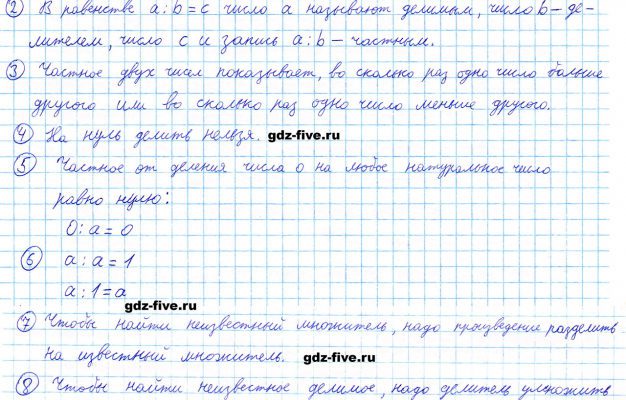 2 В равенстве a:b=c число a называют делимым, число b - де-
лителем, число c и запись a:b - частным.
3 Частное двух чисел показывает, во сколько раз одно число больше
другого или во сколько раз одно число меньше другого.
4 На нуль делить нельзя. gdz-five.ru
5 Частное от деления числа 0 на любое натуральное число
gdz-five.ru
равно нулю:
0:a=0
6 a:a=1
a:1=a
gdz-five.ru
7 Чтобы найти неизвестный множитель, надо произведение разделить
на известный множитель. gdz-five.ru
8 Чтобы найти неизвестное делимое, надо делитель умножить